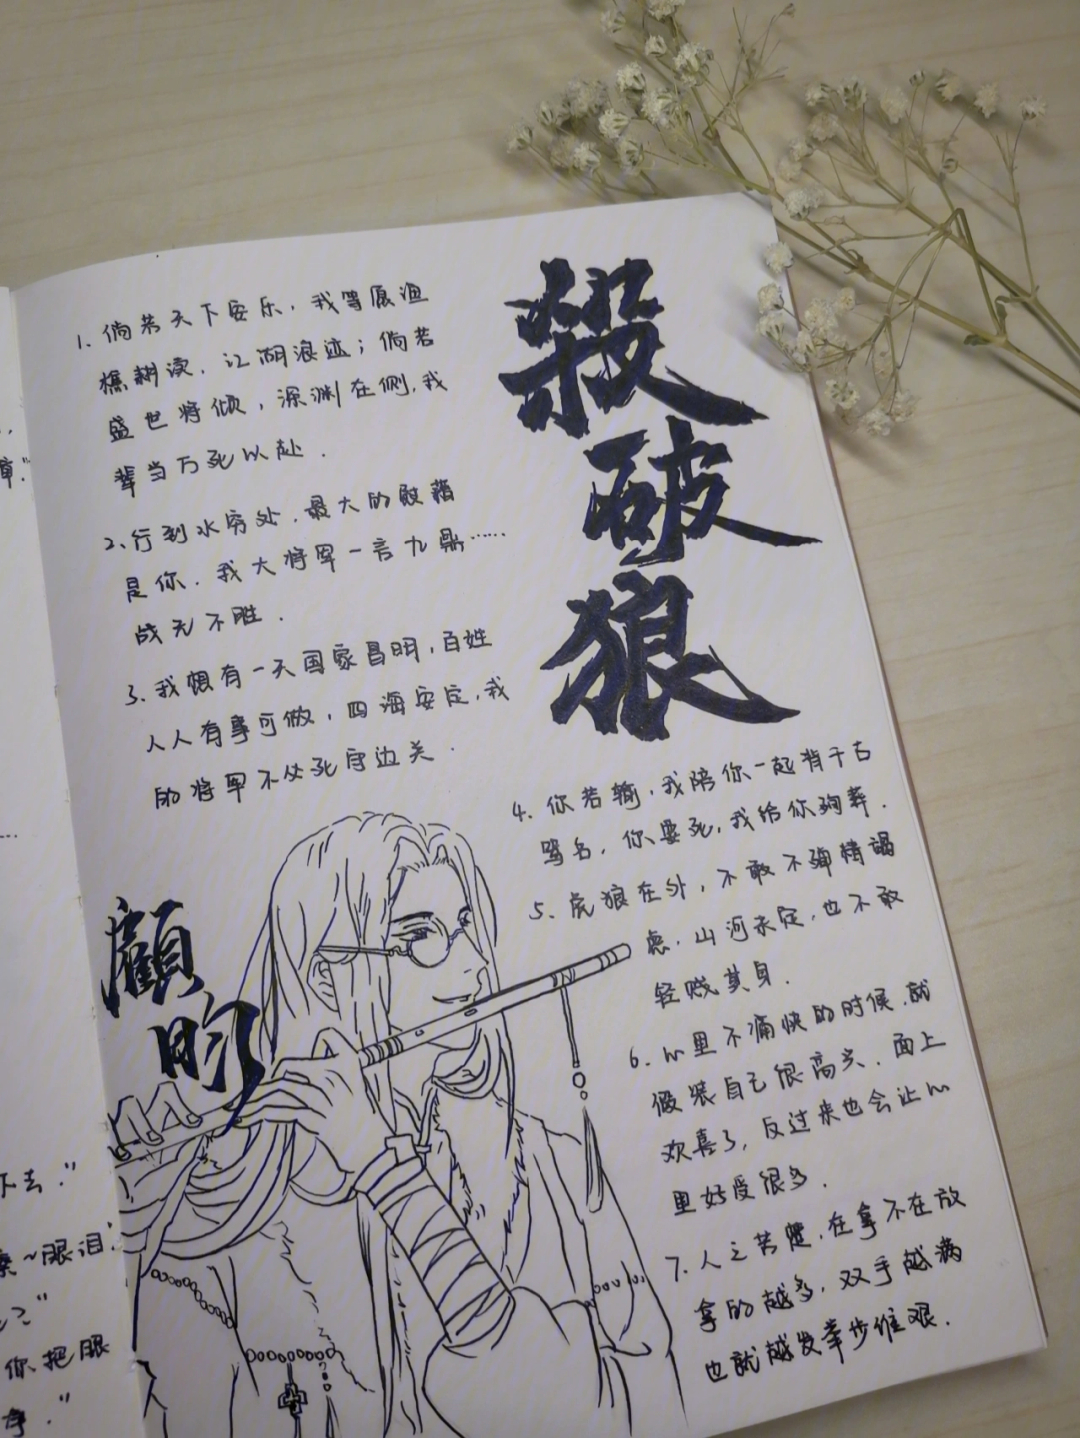 殺
破
狼
1、倘若天下安乐，我等愿渔
樵耕读，江湖浪迹；倘若
盛世将倾，深渊在侧，我
辈当万死以赴．
2、行到水穷处，最大的慰藉
是你，我大将军一言九鼎……
战无不胜．
3、我想有一天国家昌明，百姓
人人有事可做，四海安定，我
的将军不必死守边关．
4、你若输，我陪你一起背千古
骂名，你要死，我给你殉葬．
5、虎狼在外，不敢不殚精竭
虑，山河未定，也不敢
轻贱其身．
6、心里不痛快的时候，就
假装自己很高兴，面上
欢喜了，反过来也会让心
里好受很多．
7、人之苦楚，在拿不在放
拿的越多，双手越满
也就越发举步维艰．
顧
昀
章．"
下去．"
~眼泪．
你把眼